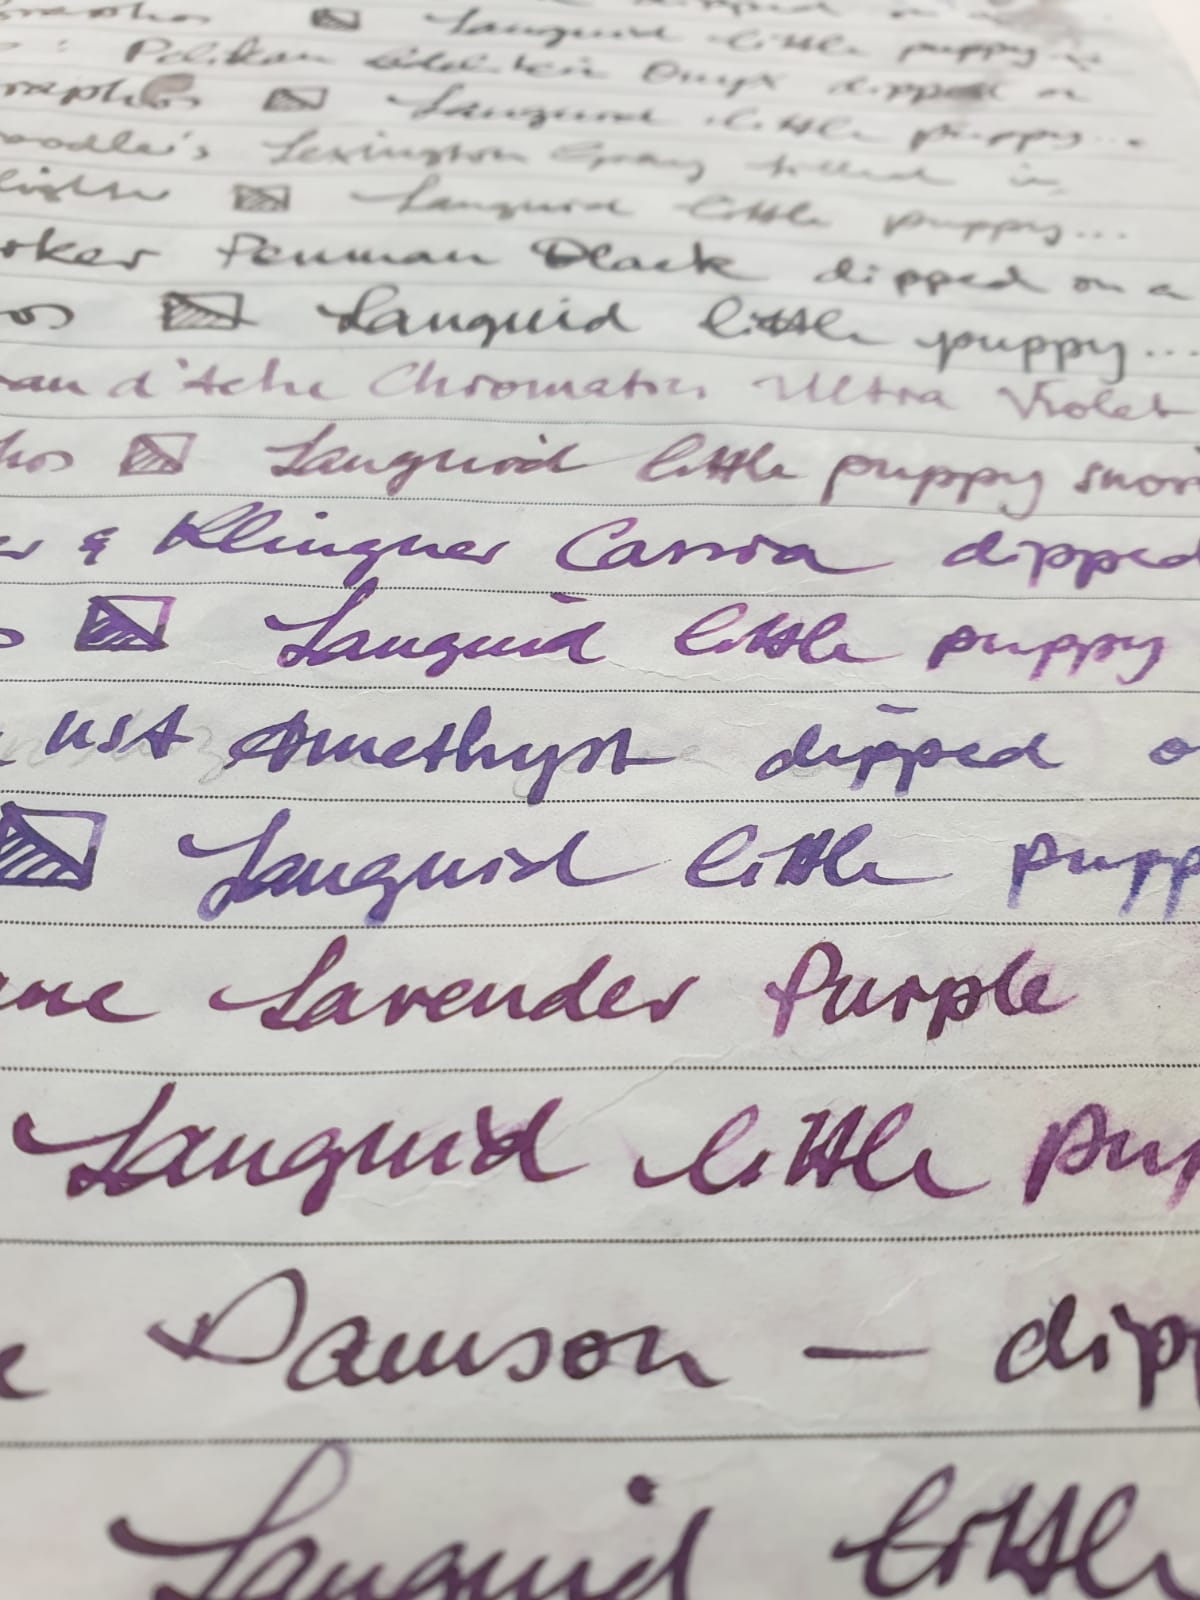 Languid little puppy
Pelikan Edelstein Onyx dipped on
Languid little puppy...
Lexington Gray filled in
Languid little puppy...
Penman Black dipped on a
Languid little puppy...
d'Ache Chromatics Ultra Violet
Languid little puppy
& Klingner Cassia dipped
Languid little puppy
Amethyst dipped
Languid little
Lavender Purple
Languid little
Damson — dipp
Languid little